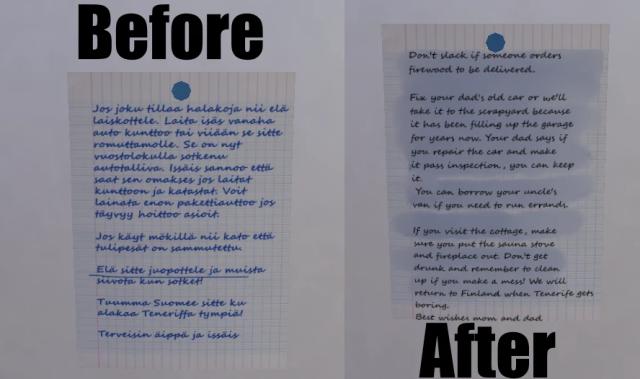 Before
Jos joku tillaa halakoja nii elä
laiskottele. Laita isäs vanaha
auto kunttoo tai viiään se sitte
romuttamolle. Se on nyt
vuostolokulla sotkenu
autotalliva. Issäis sannoo että
saat sen omakses jos laitat
kunttoon ja katastat. Voit
lainata enon pakettiauttoo jos
täyvyy hoittoo asioit.
Jos käyt mökillä nii kato että
tulipesät on sammutettu.
Elä sitte juopottele ja muista
siivota kun sotket!
Tuumma Suomee sitte ku
alakaa Teneriffa tympiä!
Terveisin äippä ja issäis
Don't slack if someone orders
firewood to be delivered.
Fix your dad's old car or we'll
take it to the scrapyard because
it has been filling up the garage
for years now. Your dad says if
you repair the car and make
it pass inspection, you can keep
it.
You can borrow your uncle's
van if you need to run errands.
If you visit the cottage, make
sure you put the sauna stove
and fireplace out. Don't get
drunk and remember to clean
up if you make a mess! We will
return to Finland when Tenerife gets
boring.
Best wishes mom and dad
After